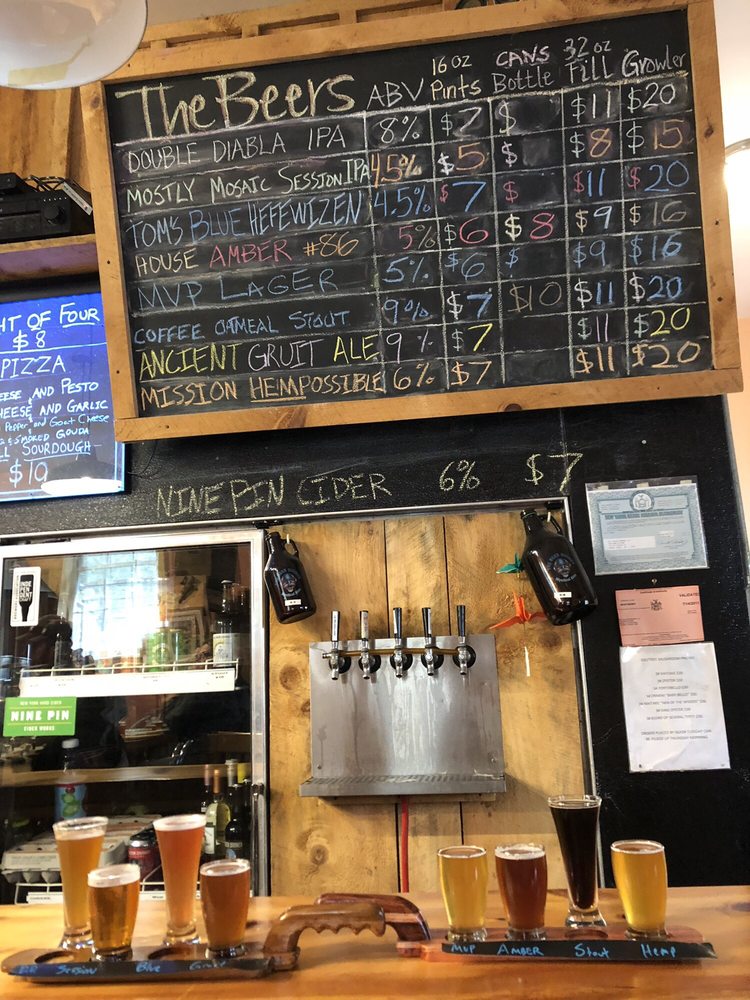 The Beers ABV 16 oz Pints CANS Bottle 32 oz Fill Growler
DOUBLE DIABLA IPA 8% $7 $ $11 $20
MOSTLY MOSAIC SESSION IPA 4.5% $5 $ $8 $15
TOM'S BLUE HEFEWIZEN 4.5% $7 $ $11 $20
HOUSE AMBER #86 5% $6 $8 $9 $16
MVP LAGER 5% $6 $ $9 $16
COFFEE OATMEAL STOUT 9% $7 $10 $11 $20
ANCIENT GRUIT ALE 9% $7 $11 $20
MISSION HEMPOSSIBLE 6% $7 $11 $20
HT OF FOUR
$8
PIZZA
EESE AND PESTO
HEESE AND GARLIC
Pepper and Goat Cheese
& SMOKED GOUDA
LL SOURDOUGH
$10
NINE PIN CIDER 6% $7
INDEPENDENT
NINE PIN
CIDER WORKS
VALIDATED
Session Blue Gruit
MVP AMBER Stout Hemp